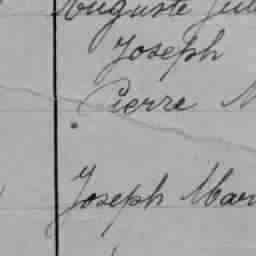 Auguste Jul
Joseph
Pierre M
Joseph Mar